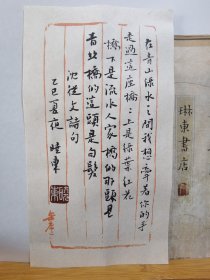 在青山緑水之间我想牵着你的手
走過這座橋々上是绿葉红花
橋下是流水人家橋的那頭是
青丝橋的這頭是白髮
沈從文詩句
乙巳夏夜
琳東書店